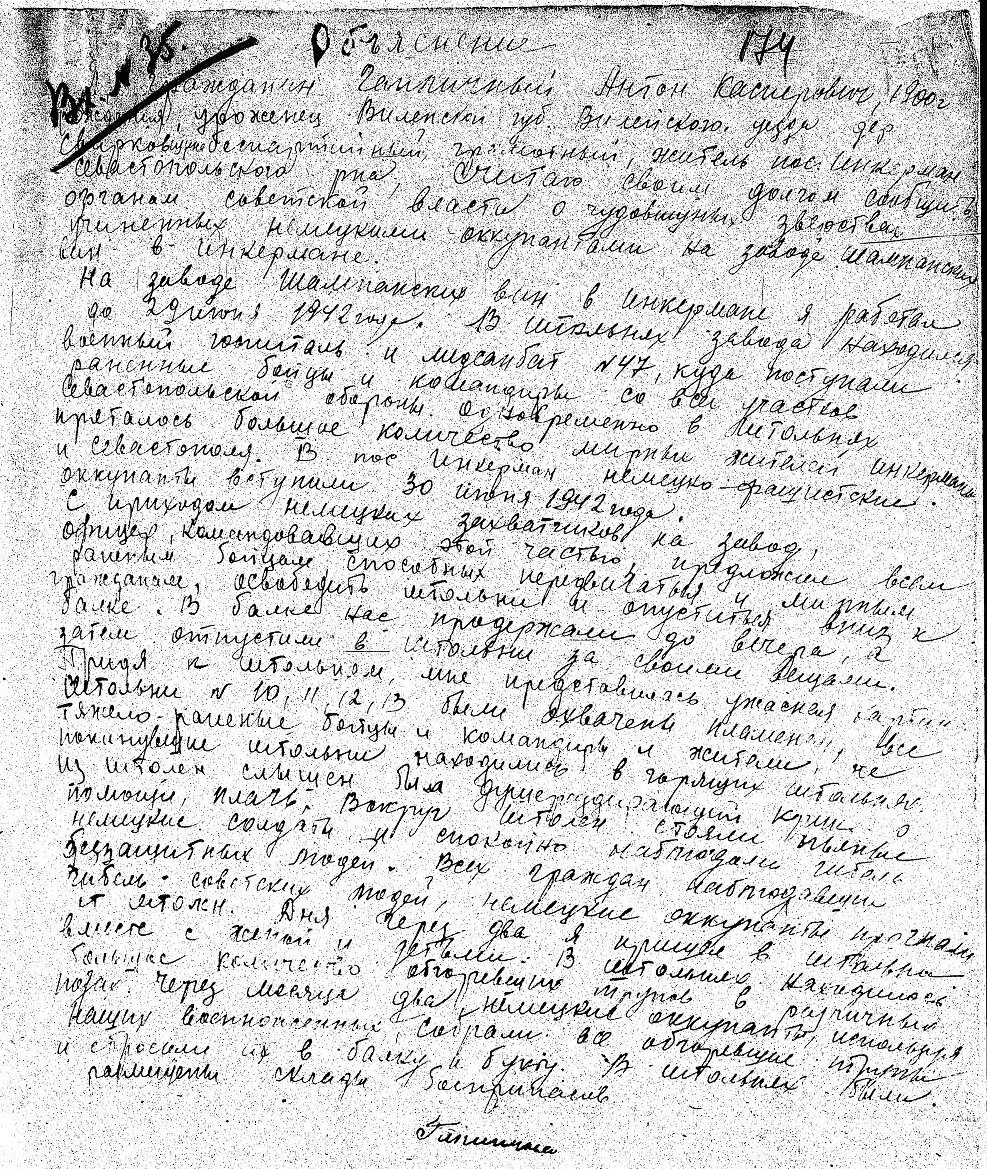 Вх. № 35.
Объяснение
174
Гражданин Антон Касперович, 1900г
рождения, уроженец Виленской губ. Вилейского уезда дер.
беспартийный, грамотный, житель пос. Инкерман
Севастопольского рна, Считаю своим долгом сообщить
органам советской власти о чудовищных зверствах
учиненных немецкими оккупантами на заводе шампанских
вин в Инкермане.
На заводе Шампанских вин в Инкермане я работал
до 29 июня 1942 года. В штольнях завода находился
военный госпиталь и медсанбат N 47, куда поступали
раненные бойцы и командиры со всех участков
Севастопольской обороны. Одновременно в штольнях
пряталось большое количество мирных жителей Инкермана
и Севастополя. В пос Инкерман немецко-фашистские
оккупанты вступили 30 июня 1942 года.
С приходом немецких захватчиков на завод,
офицер, командовавших этой частью, предложил всем
раненым бойцам, способных передвигаться и мирным
гражданам, освободить штольни и опуститься вниз к
балке. В балке нас продержали до вечера, а
затем отпустили в штольни за своими вещами.
Придя к штольням, мне представилась ужасная картина
Штольни N 10, 11, 12, 13 были охвачены пламенем, все
тяжело-раненые бойцы и командиры и жители, не
покинувшие штольни находились в горящих штольнях.
Из штолен слышен была душераздирающий крик о
помощи, плачь. Вокруг штолен стояли пьяные
немецкие солдаты и спокойно наблюдали гибель
беззащитных людей. Всех граждан наблюдавших
гибель советских людей, немецкие оккупанты прогнали
от штолен. Дня через два я пришел в штольни
вместе с женой и детьми. В штольнях находилось
большое количество обгоревших трупов в различных
позах. Через месяца два, немецкие оккупанты, используя
наших военнопленных, собрали все обгоревшие трупы
и сбросили их в балку и бухту. В штольнях были
размещены склады боеприпасов.